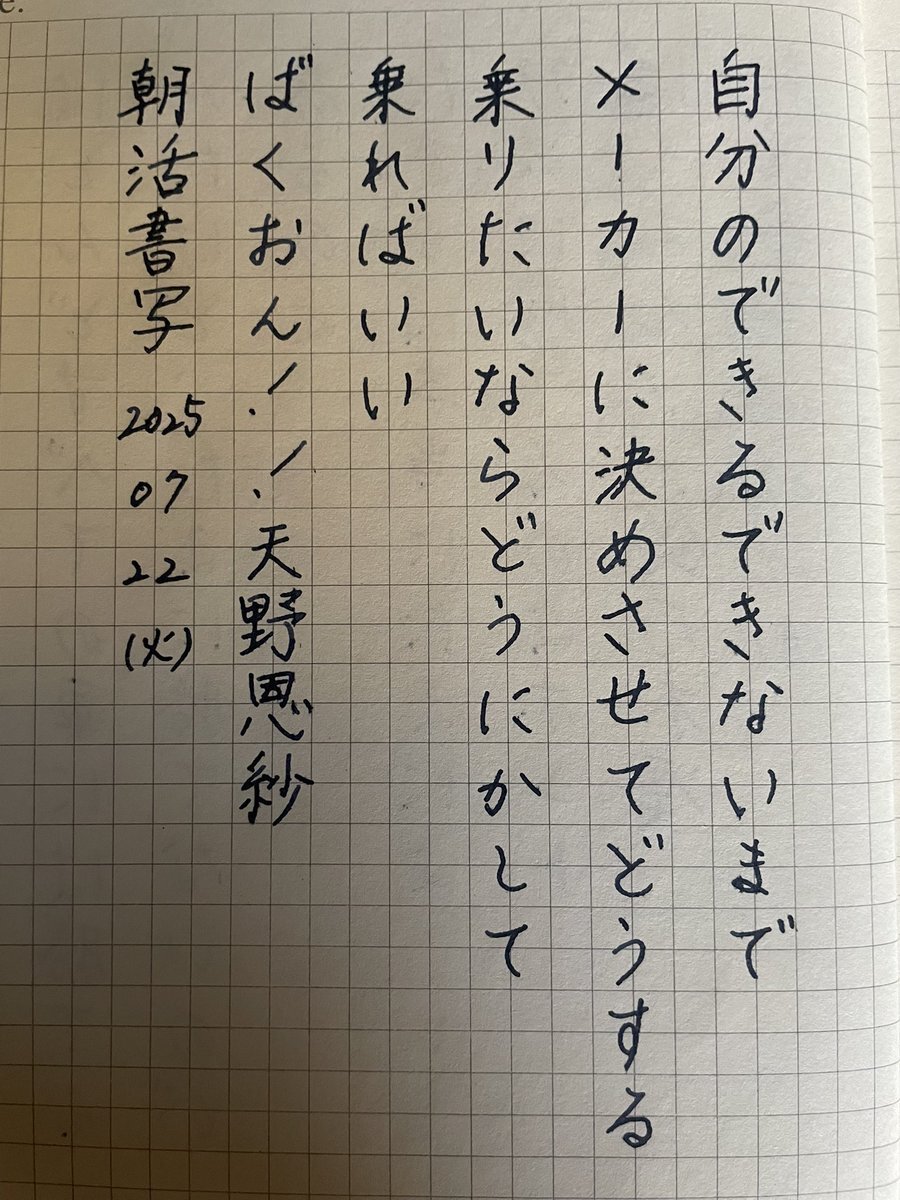 e.
自分のできるできないまで
メーカーに決めさせてどうする
乗りたいならどうにかして
乗ればいい
ばくおん！！天野恩紗
朝活書写 2025 07 22 (火)